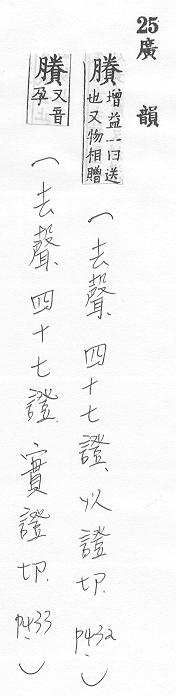 25廣韻
賸增益一曰送也又物相贈(去聲.四十七證.以證切.p432.)
賸又音孕(去聲.四十七證.實證切.p433.)